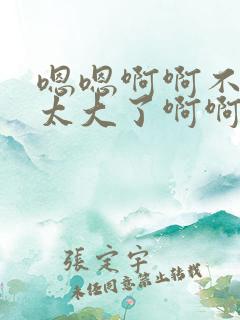 嗯嗯啊啊不
太大了啊啊
張定宇
未经同意禁止转载